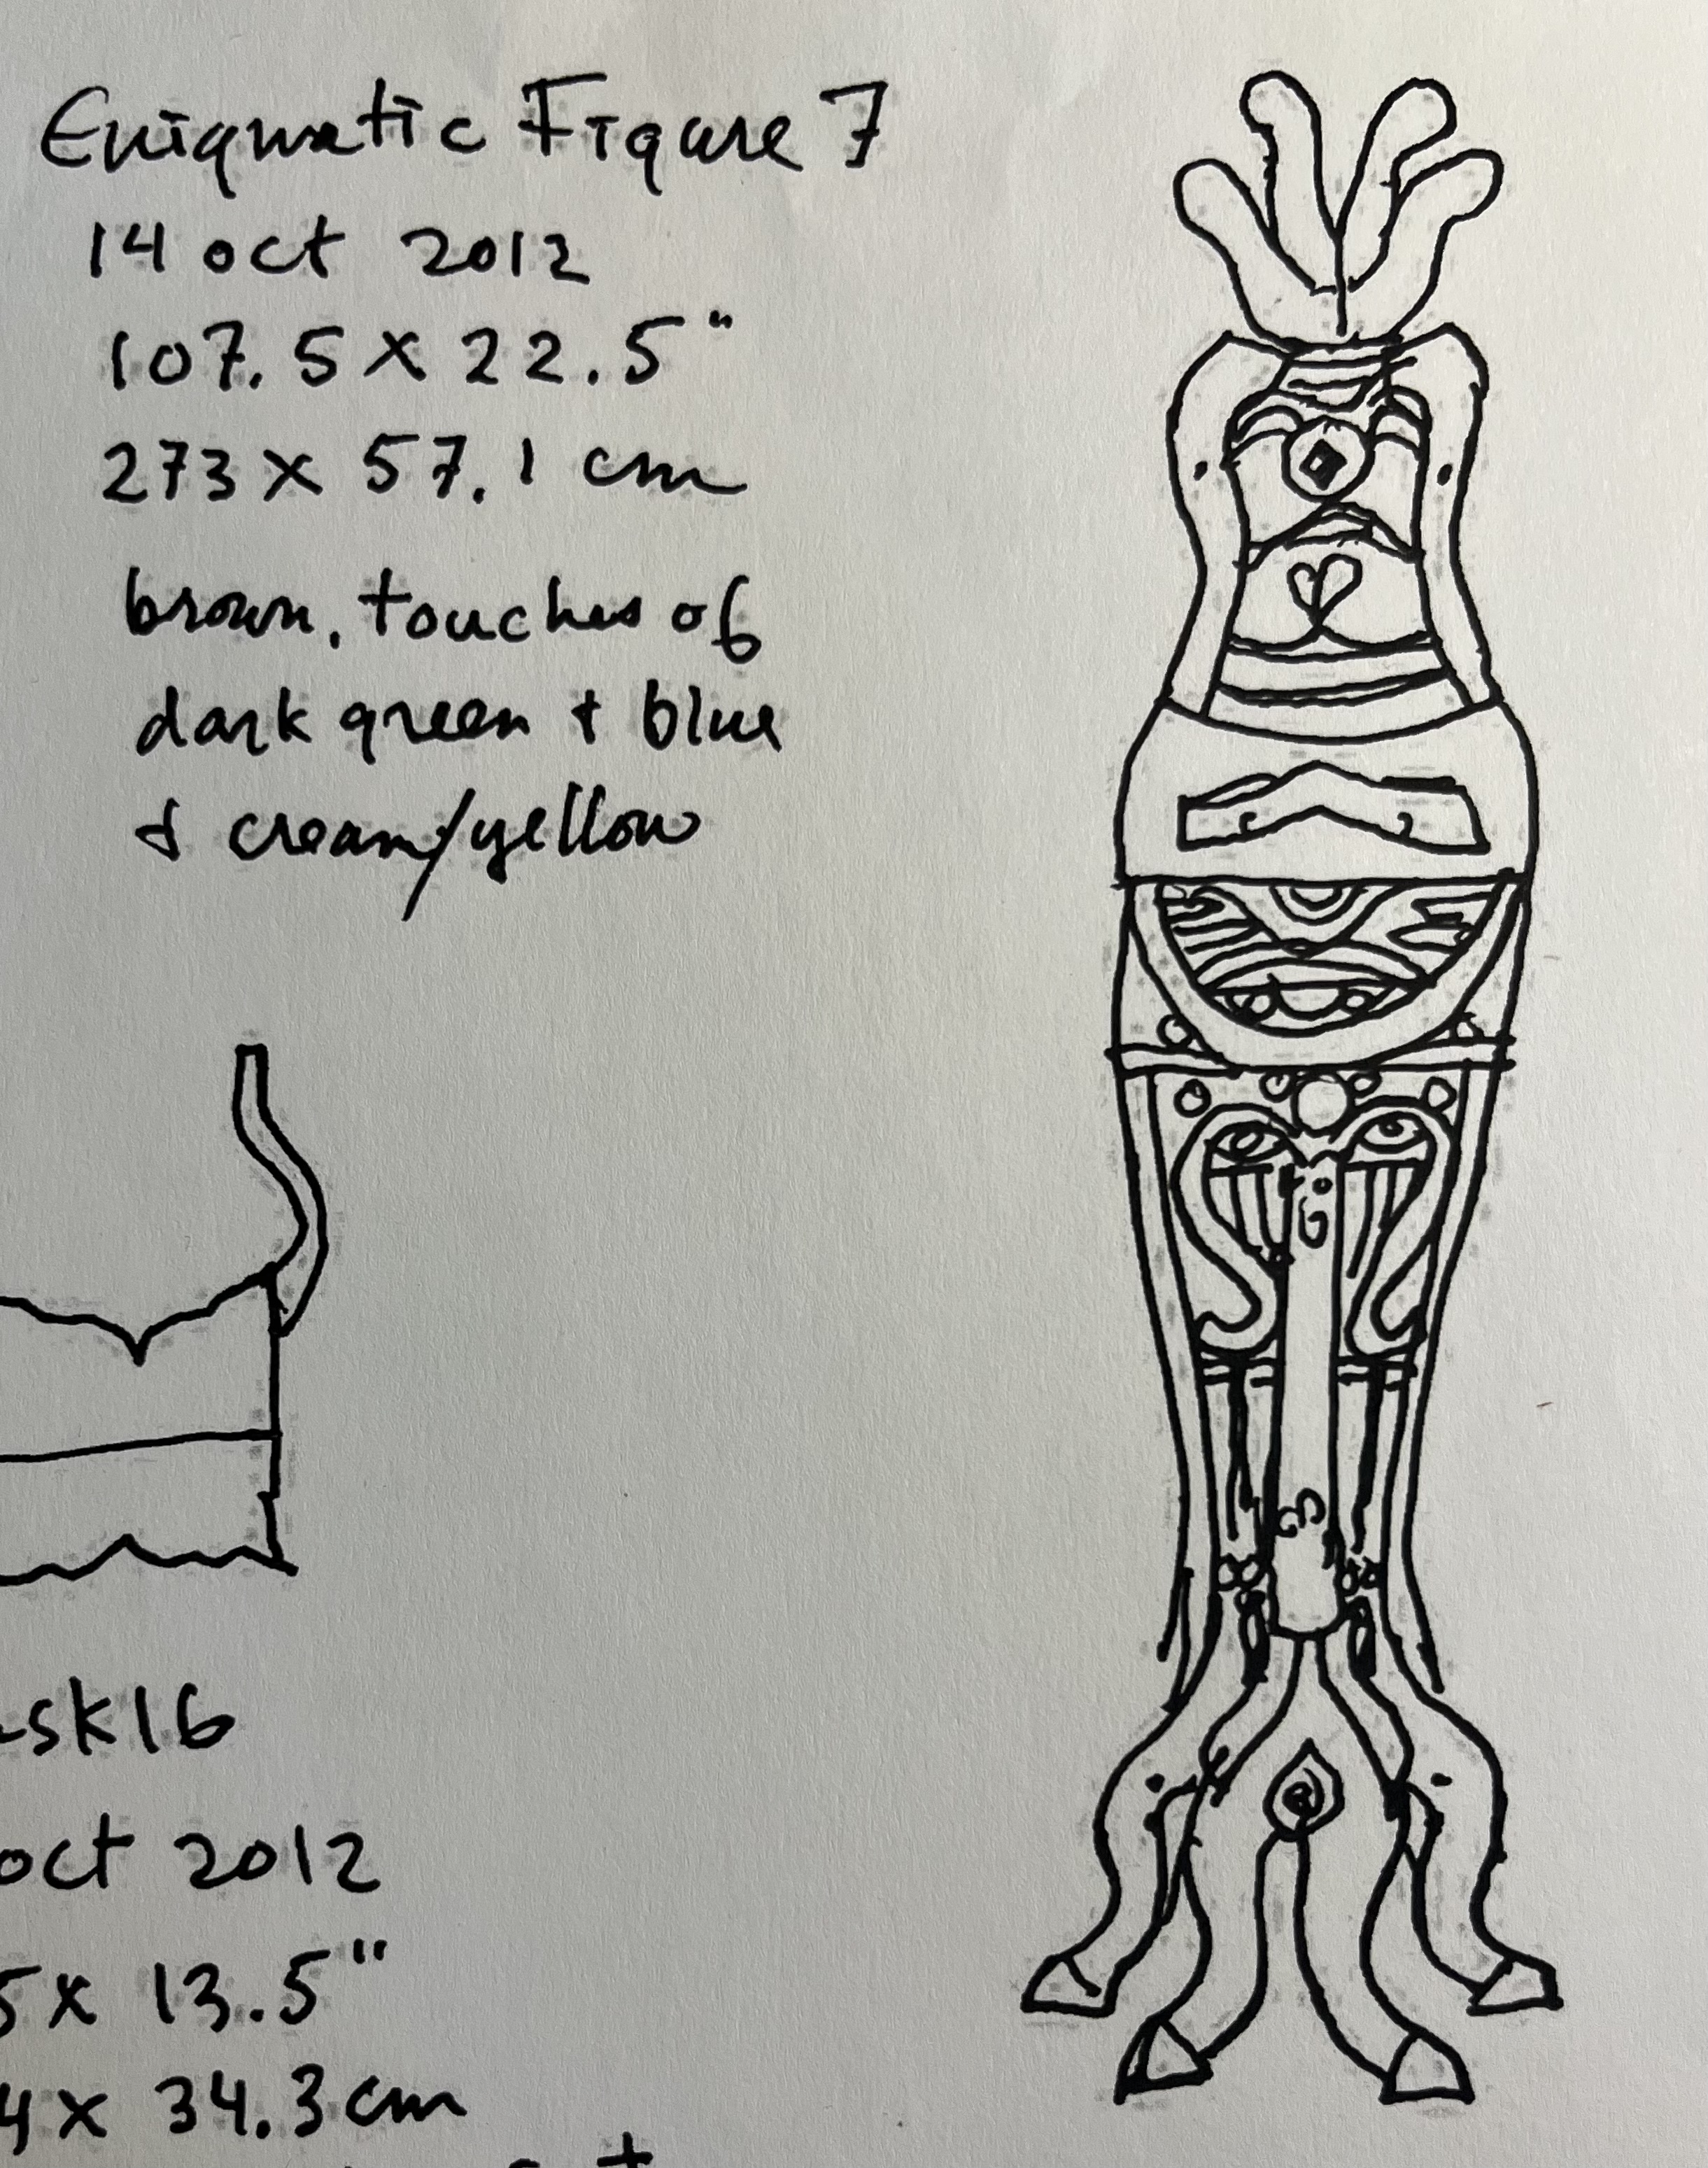 Enigmatic Figure 7
14 oct 2012
107.5 x 22.5"
273 x 57.1 cm
brown, touches of
dark green + blue
& cream/yellow
sk16
oct 2012
5x 13.5"
4x 34.3 cm